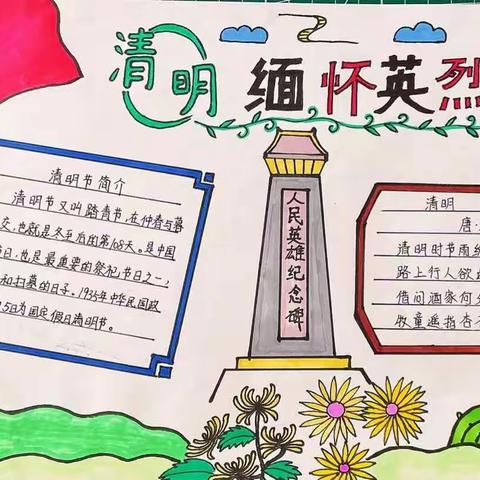 清明 缅怀英烈
清明节简介
清明节又叫踏青节,在仲春与暮
交,也就是冬至后的第108天。是中国
节日,也是最重要的祭祀节日之一,
和扫墓的日子。1935年中华民国政
5日为国定假日清明节。
人民英雄纪念碑
清明
唐
清明时节雨
路上行人欲
借问酒家何
牧童遥指杏